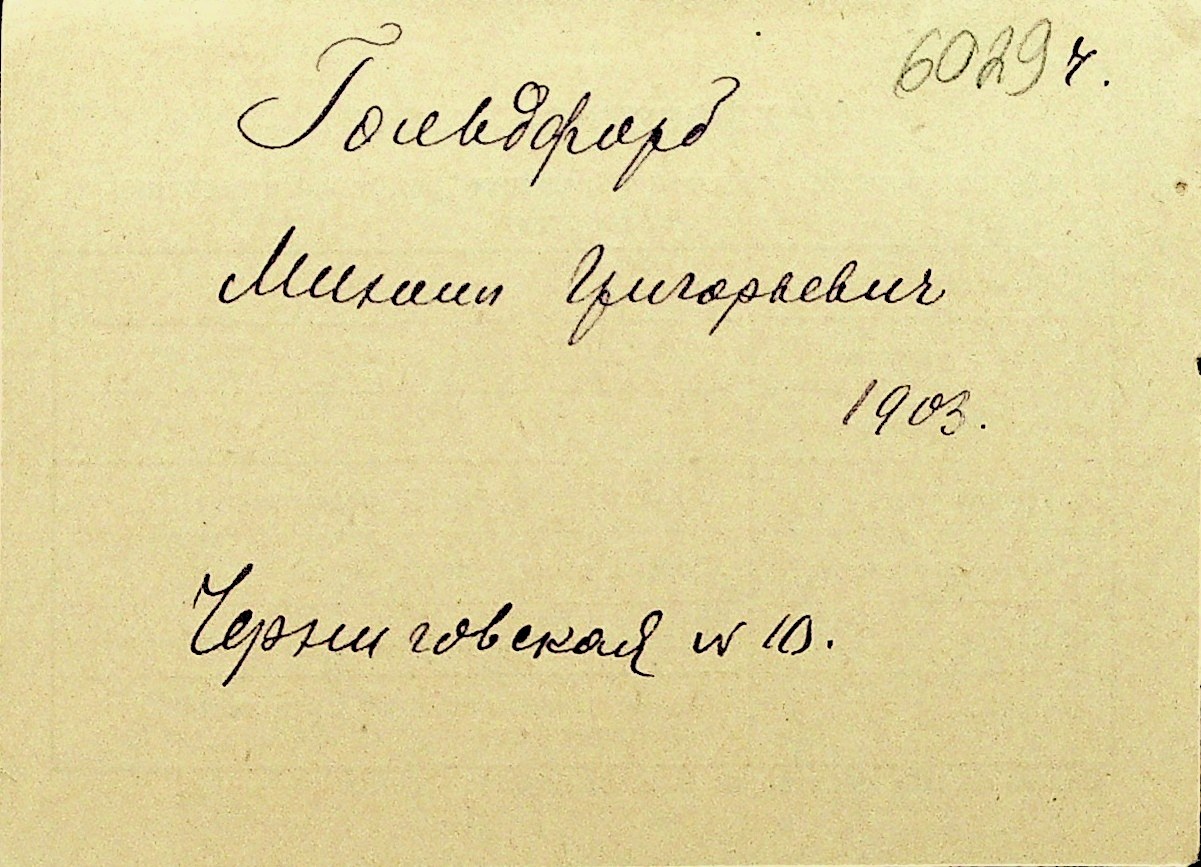 6029 ч.
Гольдфарб
Михаил Григорьевич
1903.
Черниговская № 10.